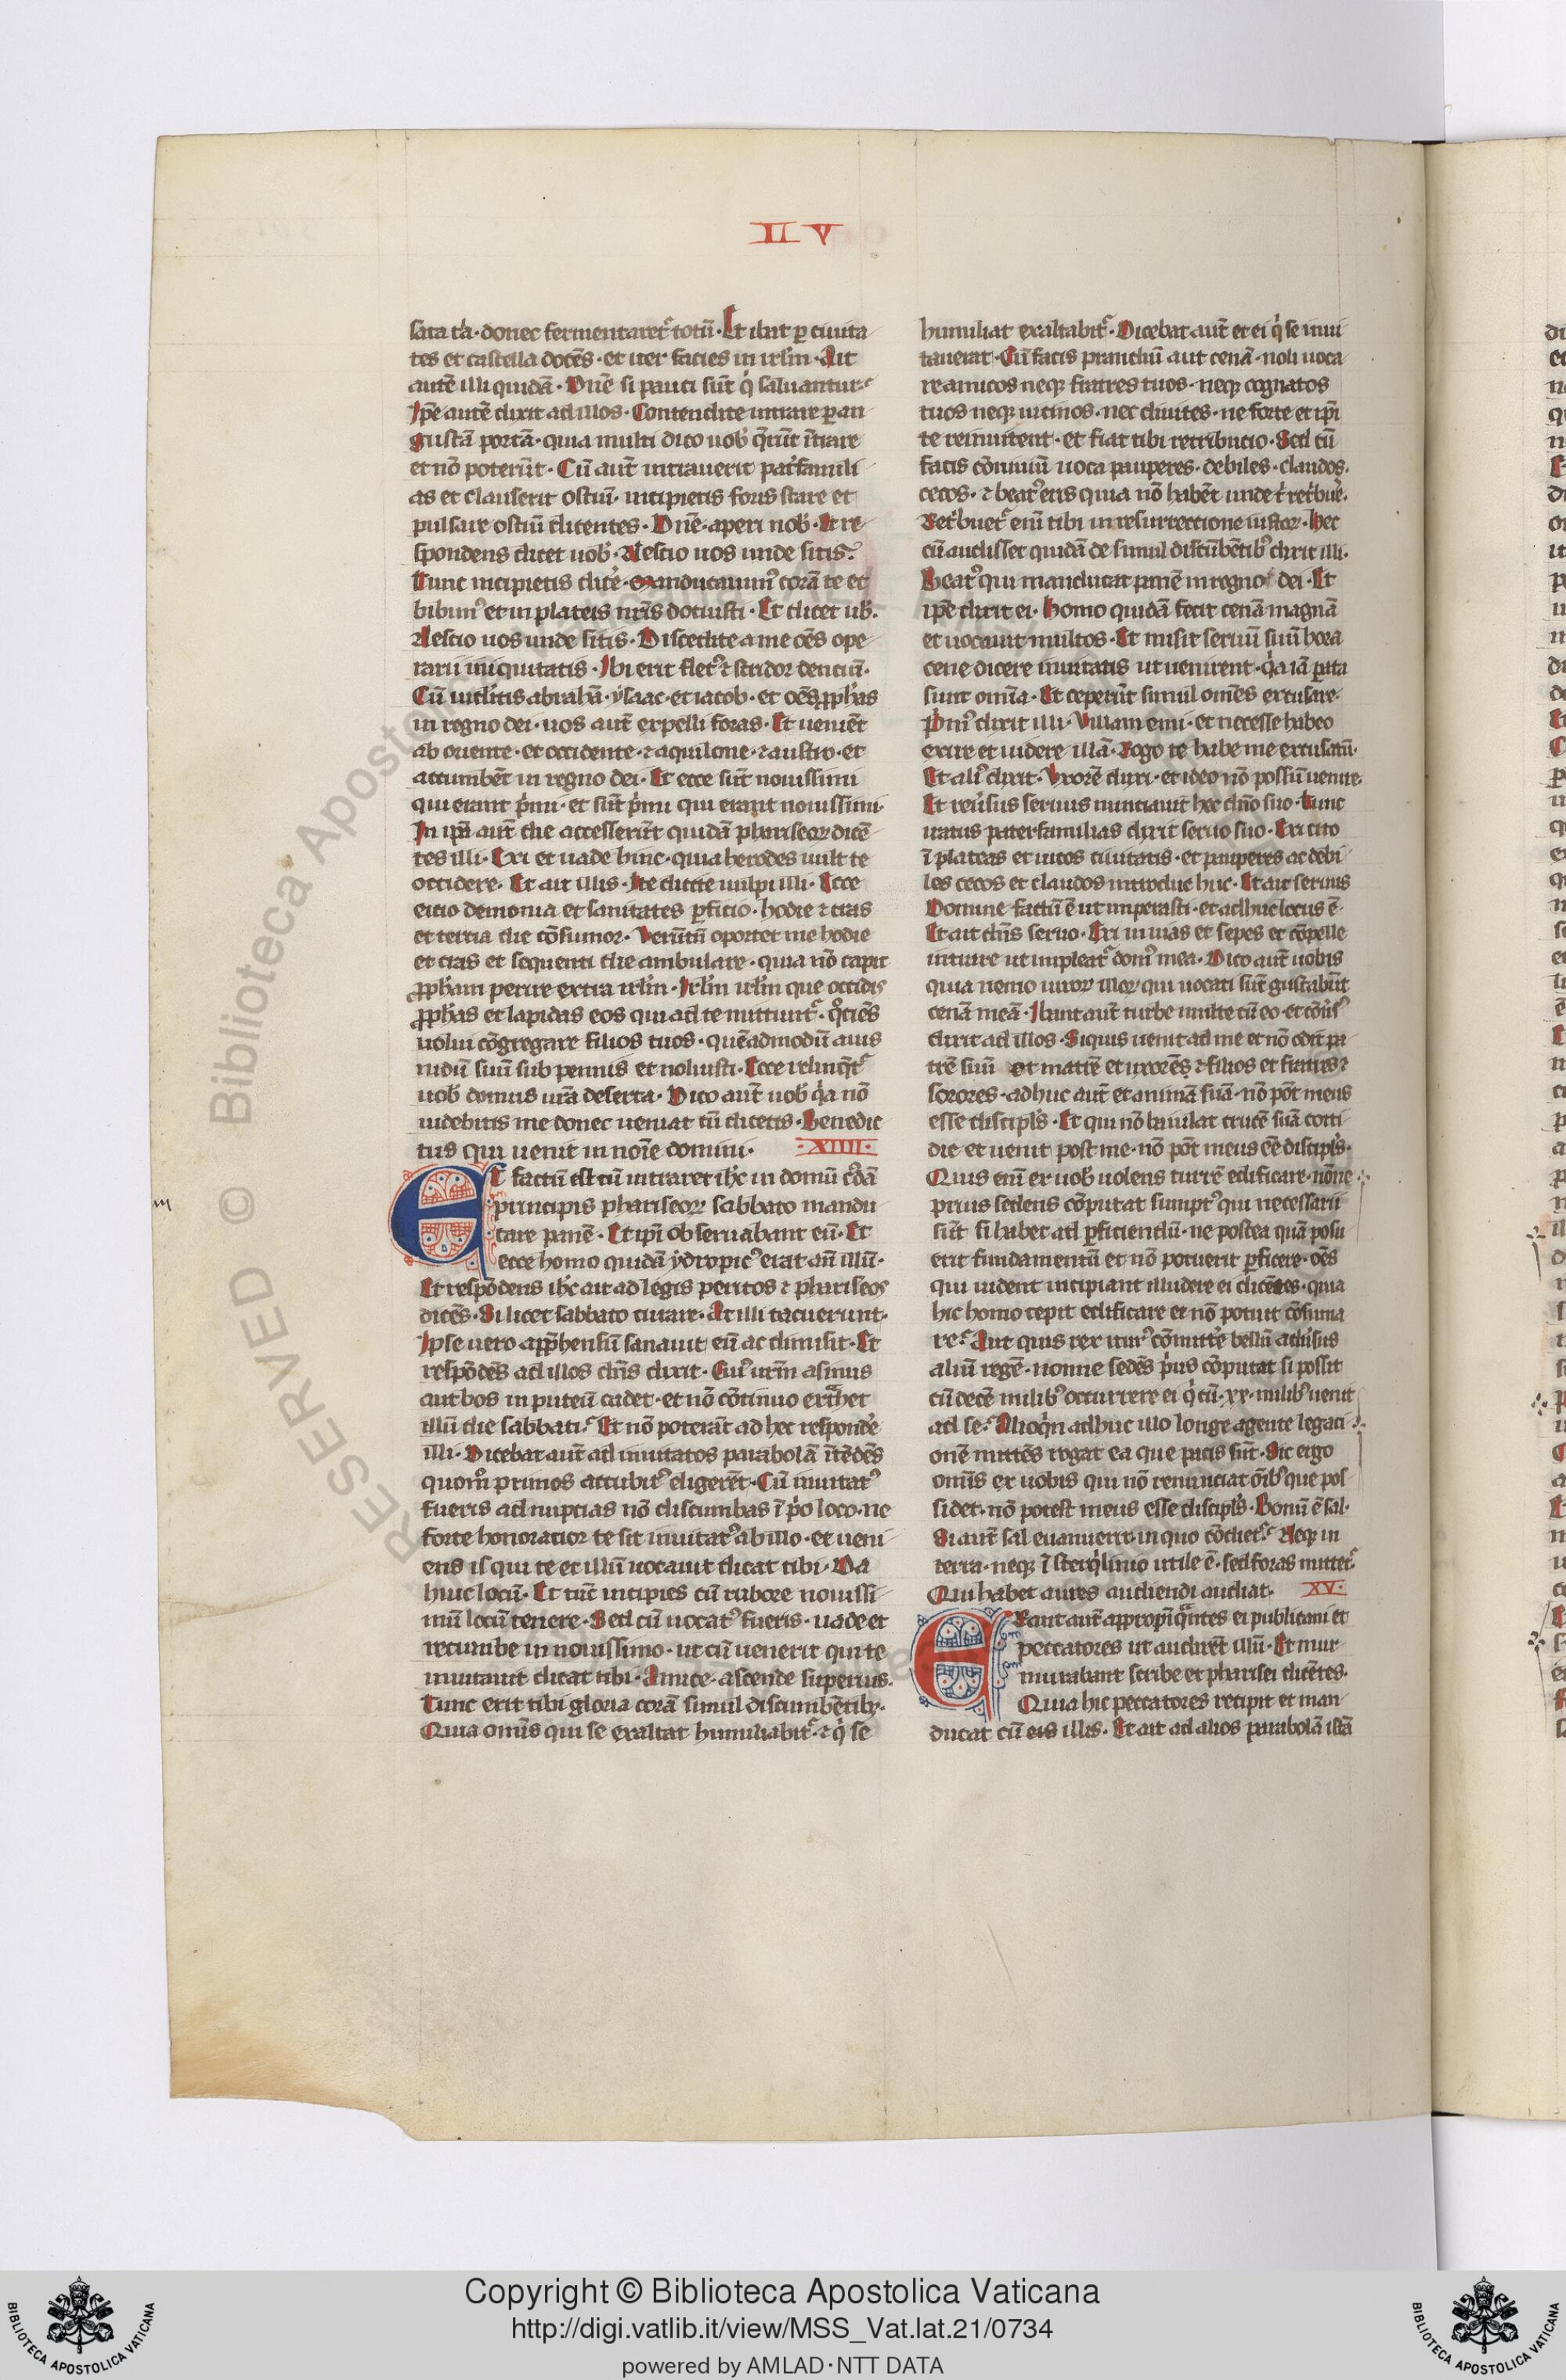 II V
sata tͥa· donec fermentaretᷣ totū· Et ibat ꝑ ciuita
tes et castella docēs· et iter faciēs in irlm̄· Ait
autē illi quidā· Dn̄e si pauci sūt qͥ saluantur·
Ip̄e autē dixit ad illos· Contendite intrare ꝑ an
gustā portā· quia multi dico uob̾ q̄rūt ītrare
et nō poterūt· Cū aut̄ intrauerit pat̾famili
as et clauserit ostiū· incipietis foris stare et
pulsare ostiū dicentes· Dn̄e aperi nob̾· Et re
spondens dicet uob̾· Nescio uos unde sitis·
Tunc incipietis dic̾e· manducauimꝰ corā te et
bibimꝰ et in plateis nr̄is docuisti· Et dicet ub̾·
Nescio uos unde sitis· Discedite a me oēs ope
rarii iniquitatis· Ibi erit fletꝰ ⁊ stridor dentiū·
Cū uid̾itis abrahā· ysaac· et iacob· et oēs ꝓph̾as
in regno dei· uos aut̄ expelli foras· Et ueniēt
ab oriente· et occidente· ⁊ aquilone· ⁊ austro· et
accumbēt in regno dei· Et ecce sūt nouissimi
qui erant pͥmi· et sūt pͥmi qui erant nouissimi·
In ip̄a aut̄ die accesserūt quidā phariseoꝝ dicē
tes illi· Exi et uade hinc· quia herodes uult te
occidere· Et ait illis· Ite dicite uulpi illi· Ecce
eicio demonia et sanitates ꝑficio· hodie ⁊ cras
et tertia die cōsumor· Verūtn̄ oportet me hodie
et cras et sequenti die ambulare· quia nō capit
ꝓph̾am perire extra irlm̄· Irlm̄ irlm̄ que occidis
ꝓph̾as et lapidas eos qui ad te mittuntᷣ· qͦciēs
uolui cōgregare filios tuos· quēadmodū auis
nidū suū sub pennis et noluisti· Ecce relinq̄tᷣ
uob̾ domus ur̄a deserta· Dico aut̄ uob̾ qͥa nō
uidebitis me donec ueniat cū dicetis· Benedic
tus qui uenit in noīe domini· ·XIIII·
ET factū est cū intraret ih̾c in domū cͥdā
principis phariseoꝝ sabbato mandu
care panē· Et ip̄i obseruabant eū· Et
ecce homo quidā ydropicꝰ erat an̄ illū·
Et respōdens ih̾c ait ad legis peritos ⁊ phariseos
dicēs· Si licet sabbato curare· At illi tacuerunt·
Ipse uero app̄hensū sanauit eū ac dimisit· Et
respōdēs ad illos dn̄s dixit· Cuiꝰ ur̄m asinus
aut bos in puteū cadet· et nō cōtinuo extͣhet
illū die sabbati· Et nō poterāt ad hec respond̾e
illi· Dicebat aut̄ ad inuitatos parabolā ītēdēs
quomͦ primos accubitꝰ eligerēt· Cū inuitatꝰ
fueris ad nuptias nō discumbas ī pͥo loco· ne
forte honoratior te sit inuitatꝰ ab illo· et ueni
ens is qui te et illū uocauit dicat tibi· Da
huic locū· Et tūc incipies cū rubore nouissi
mū locū tenere· Sed cū uocatꝰ fueris· uade et
recumbe in nouissimo· ut cū uenerit qui te
inuitauit dicat tibi· Amice ascende superius·
Tunc erit tibi gloria corā simul discumbētibꝫ·
Quia omīs qui se exaltat humiliabitᷣ· ⁊ qͥ se
humiliat exaltabitᷣ· Dicebat aut̄ et ei qͥ se inui
tauerat· Cū facis prandiū aut cenā· noli uoca
re amicos neqꝫ fratres tuos· neqꝫ cognatos
tuos neqꝫ uicinos· nec diuites· ne forte et ip̄i
te reinuitent· et fiat tibi retributio· Sed cū
facis cōuiuiū uoca pauperes· debiles· claudos·
cecos· ⁊ beatꝰ eris quia nō habēt unde tͥ ret̾buē·
Ret̾buetᷣ eni̅ tibi in resurrectione iustoꝝ· Hec
cū audisset quidā de simul discūbētibꝰ dixit illi·
Beatꝰ qui manducat panē in regno dei· Et
ip̄e dixit ei· Homo quidā fecit cenā magnā
et uocauit multos· Et misit seruū suū hora
cene dicere inuitatis ut uenirent· qͥa iā parata
sunt omīa· Et ceperūt simul omēs excusare·
pͥmꝰ dixit illi· Villam emi· et necesse habeo
exire et uidere illā· Rogo te habe me excusatū·
Et aliꝰ dixit· Vxorē duxi· et ideo nō possū uenire·
Et reu̾sus seruus nunciauit hec dn̄o suo· Tunc
iratus paterfamilias dixit seruo suo· Exi cito
ī plateas et uicos ciuitatis· et pauperes ac debi
les cecos et claudos introduc huc· Et ait seruus
Domine factū ē ut imperasti· et adhuc locus ē·
Et ait dn̄s seruo· Exi in uias et sepes et cōpelle
intrare ut impleatᷣ domꝰ mea· Dico aut̄ uobis
quia nemo uiroꝝ illoꝝ qui uocati sūt gustabūt
cenā meā· Ibant aut̄ turbe multe cū eo· et cōu̾sꝰ
dixit ad illos· Siquis uenit ad me et nō odit pa
trē suū et matrē et uxorēs ⁊ filios et fratres ⁊
sorores· adhuc aut̄ et animā suā· nō pōt meus
esse discipl̾s· Et qui nō baiulat crucē suā cotti
die et uenit post me· nō pōt meus eē discipl̾s·
Quis eni̅ ex uob̾ uolens turrē edificare· nōne
prius sedens cōputat sumptꝰ qui necessarii
sūt si habet ad ꝑficiendū· ne postea quā posu
erit fundamentū et nō potuerit ꝑficere· oēs
qui uident incipiant illudere ei dicētes· quia
hic homo cepit edificare et nō potuit cōsuma
re· Aut quis rex iturꝰ cōmitt̾e bellū adu̾sus
aliū regē· nonne sedēs pͥus cōputat si possit
cū decē milibꝰ occurrere ei qͥ cū ·xx· milibꝰ uenit
ad se· Alioqͥn adhuc illo longe agente legati
onē mittēs rogat ea que pacis sūt· Sic ergo
omīs ex uobis qui nō renunciat oībꝰ que pos
sidet· nō potest meus esse discipl̾s· Bonū ē sal·
Si aut̄ sal euanuerit· in quo cōdietᷣ· Neqꝫ in
terra· neqꝫ ī sterqͥlinio utile ē· sed foras mittetᷣ
Qui habet aures audiendi audiat· XV·
ERant aut̄ appropīqͣntes ei publicani et
peccatores ut audirēt illū· Et mur
murabant scribe et pharisei dicētes·
Quia hic peccatores recipit et man
ducat cū eis illis· Et ait ad alios parabolā istā
RESERVED © Biblioteca Apostolica
Copyright © Biblioteca Apostolica Vaticana
http://digi.vatlib.it/view/MSS_Vat.lat.21/0734
powered by AMLAD·NTT DATA
BIBLIOTECA APOSTOLICA VATICANA
BIBLIOTECA APOSTOLICA VATICANA